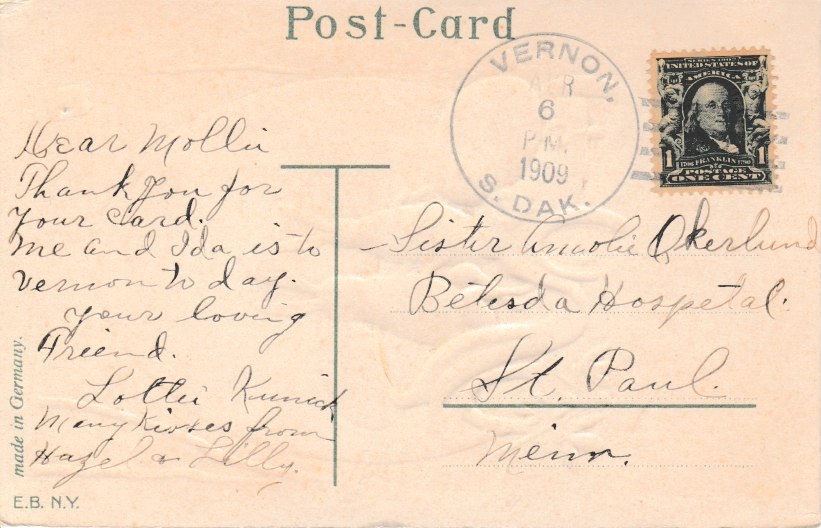 Post-Card
VERNON,
APR
6
P.M.
1909
S. DAK.
SERIES 1902
UNITED STATES OF
AMERICA
1706 FRANKLIN 1790
1 1
POSTAGE
ONE CENT
Dear Mollie
Thank You for
Your Card.
me and Ida is to
Vernon to day.
Your loving
Friend.
Lottie
Many Kisses from
Hazel & Lilly.
Sister Amolie Okerlund
Betesda Hospetal.
St. Paul.
Minn.
made in Germany.
E.B. N.Y.